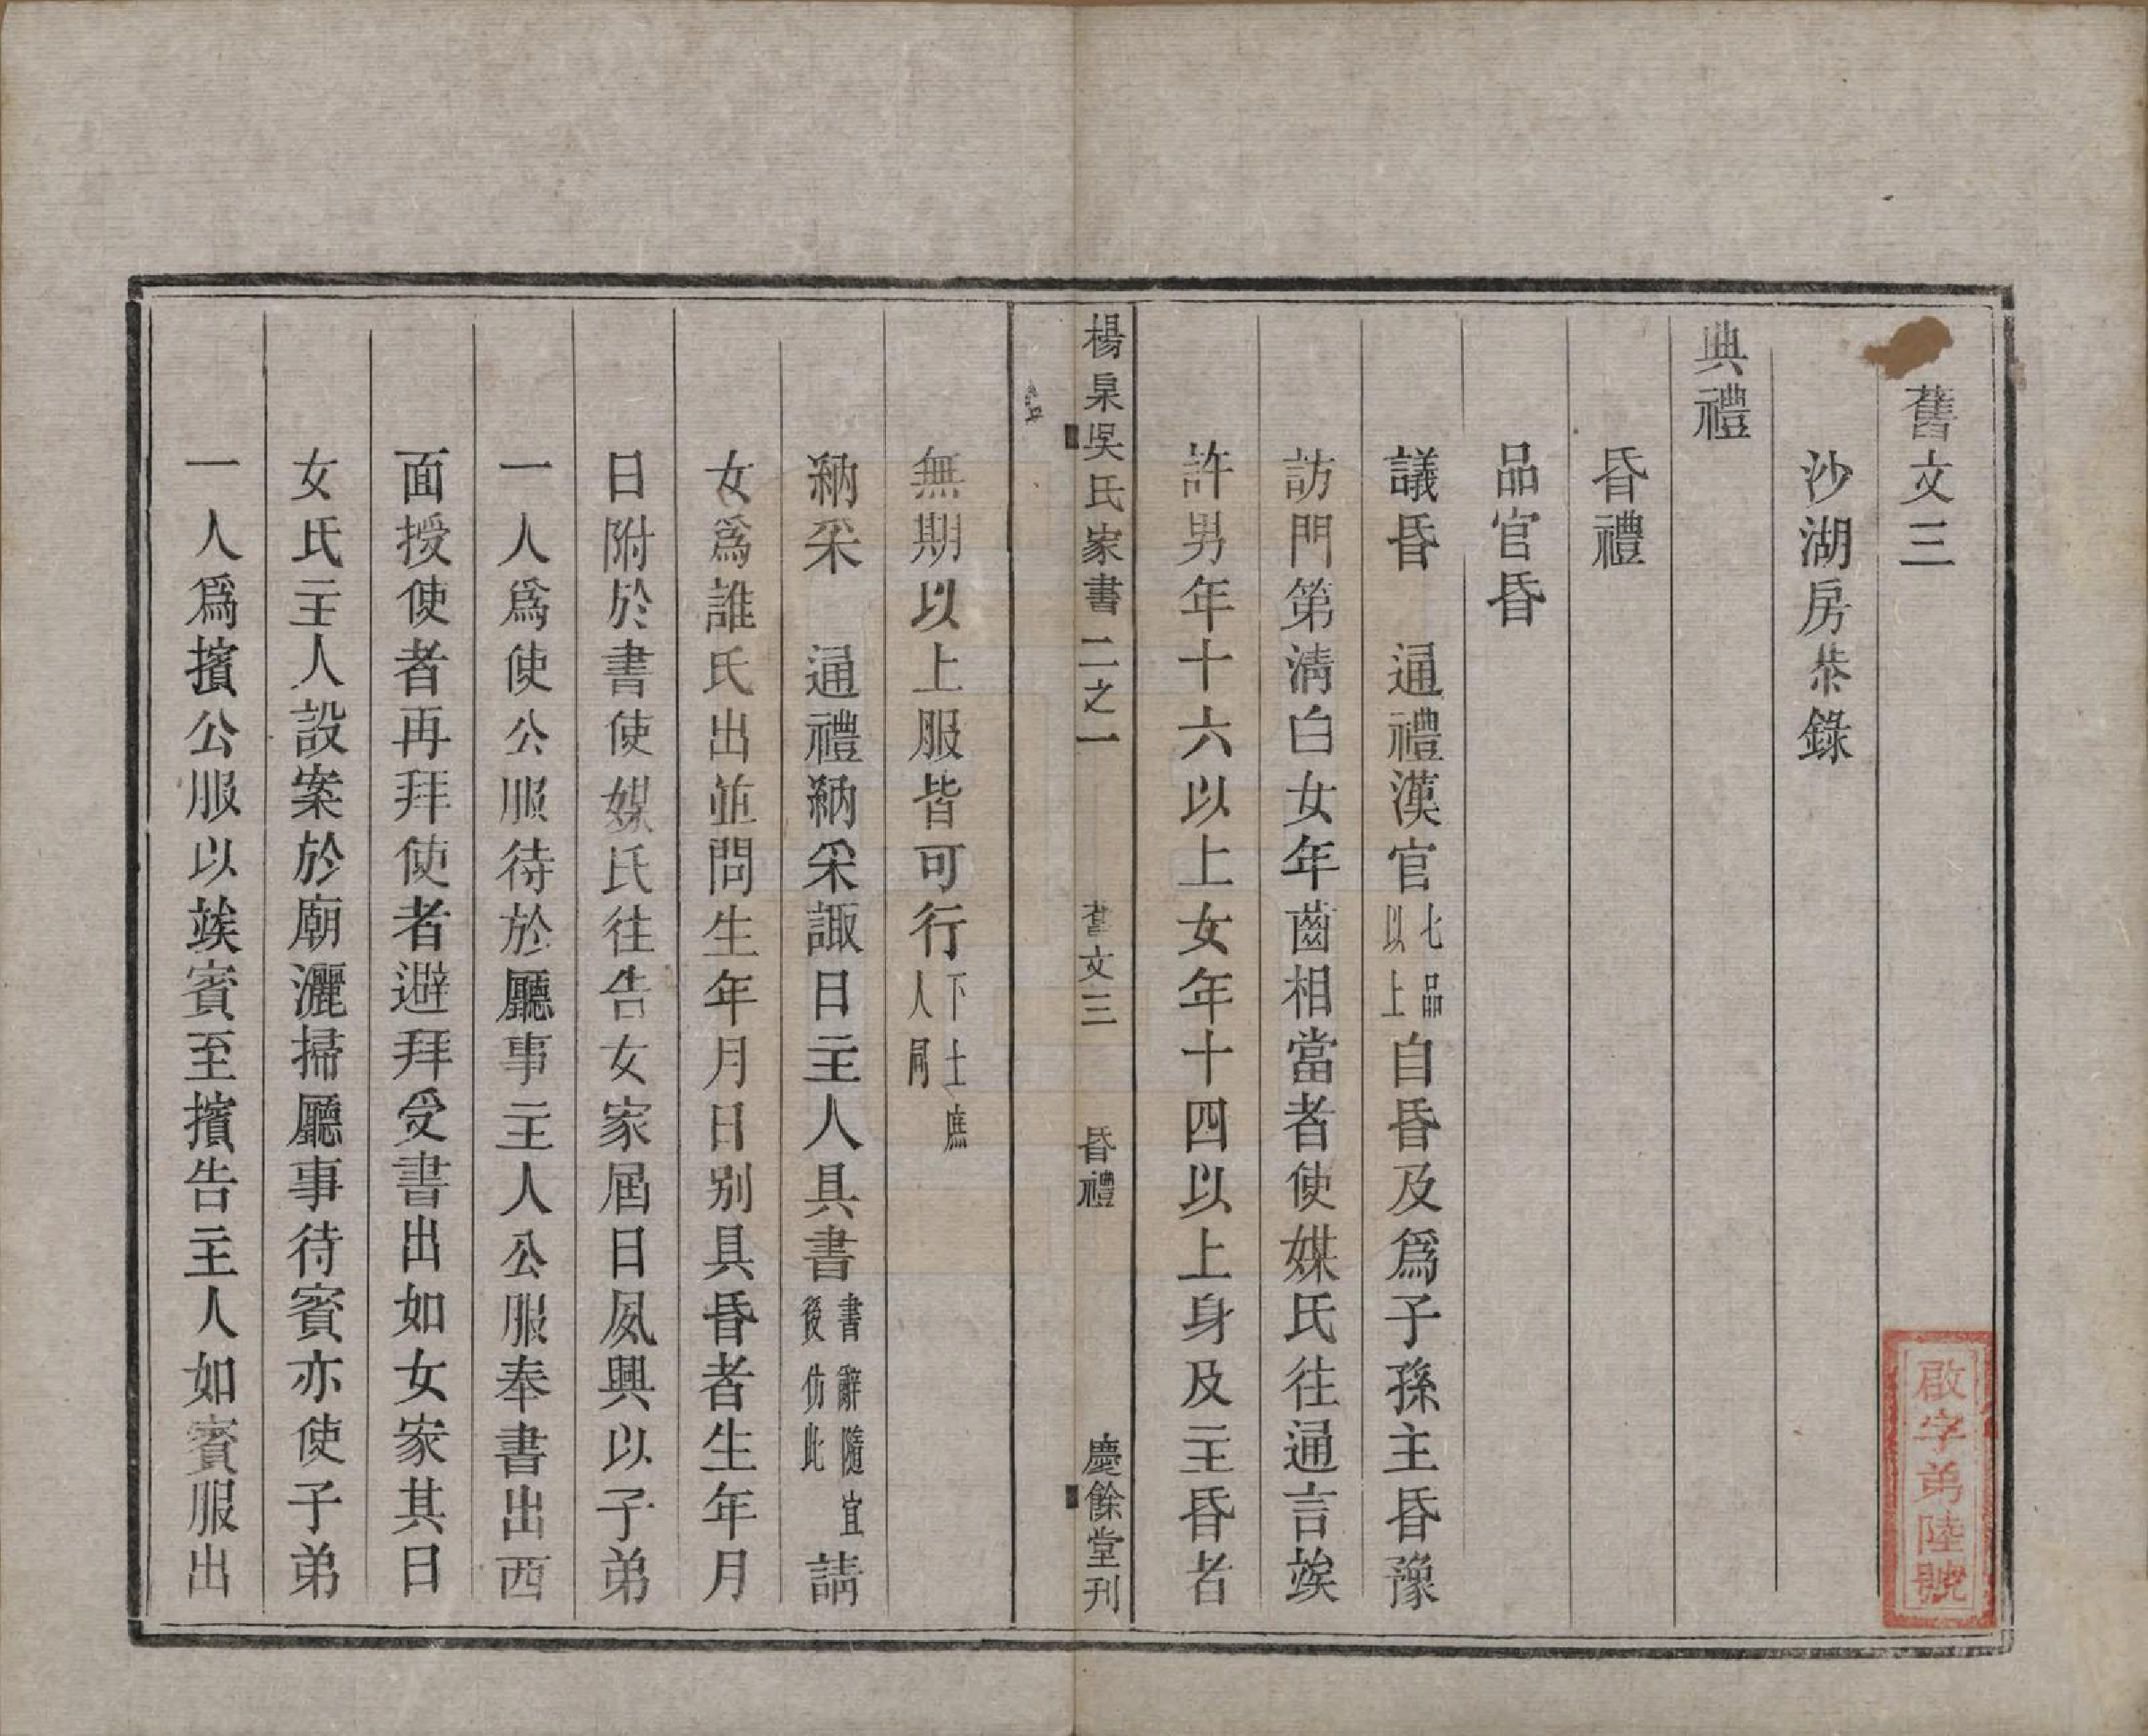 舊文三
沙湖房恭錄
典禮
昏禮
品官昏
議昏　通禮漢官七品以上自昏及爲子孫主昏豫
訪門第淸白女年齒相當者使媒氏往通言竢
許男年十六以上女年十四以上身及主昏者
楊泉吳氏家書二之一　舊文三　昏禮　慶餘堂刋
無期以上服皆可行下士庶人同
納采　通禮納采諏日主人具書書辭隨宜後仿此請
女爲誰氏出並問生年月日别具昏者生年月
日附於書使媒氏往告女家屆日夙興以子弟
一人爲使公服待於廳事主人公服奉書出西
面授使者再拜使者避拜受書出如女家其日
女氏主人設案於廟灑掃廳事待賓亦使子弟
一人爲擯公服以竢賓至擯告主人如賓服出
啟字弟陸號